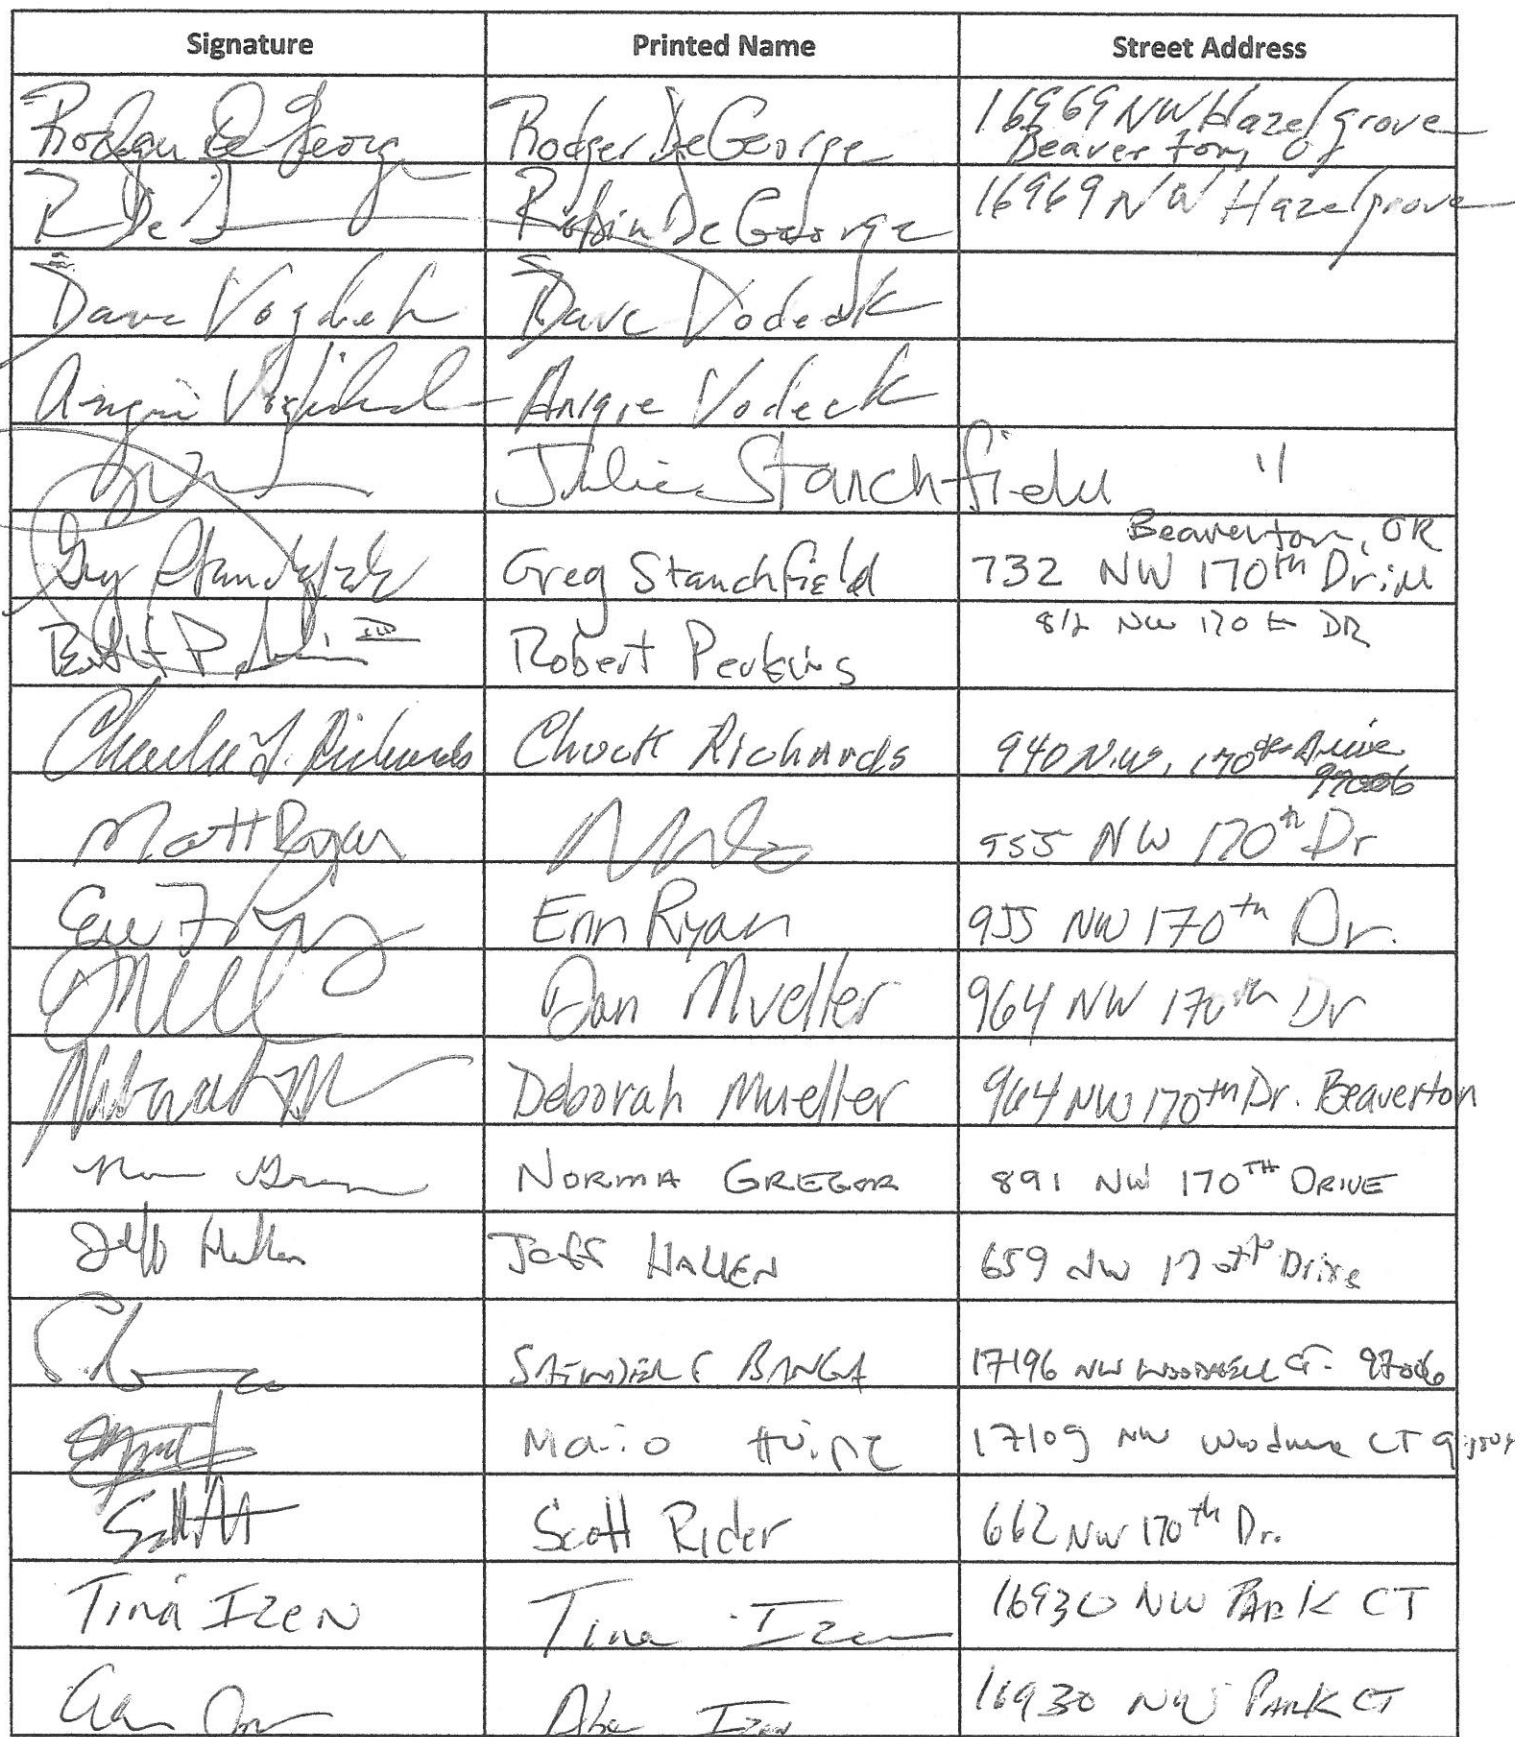 Signature Printed Name Street Address
Rodger DeGeorge Rodger DeGeorge 16969 NW Hazelgrove
Beaverton, Or
R De Robin DeGeorge 16969 NW Hazelgrove
Dave Dave Vodeck
Angie Angie Vodeck
Julie Stanchfield "
Beaverton, OR
Greg Stanchfield Greg Stanchfield 732 NW 170th Drive
Robert Perkins 812 NW 170th DR
Richards Chuck Richards 940 N.W. 170th Drive
97006
Matt Ryan 955 NW 170th Dr
Erin Ryan 955 NW 170th Dr.
Dan Mueller 964 NW 170th Dr
Deborah Mueller 964 NW 170th Dr. Beaverton
NORMA GREGOR 891 NW 170TH DRIVE
Jeff Hallen Jeff HALLEN 659 NW 170th Drive
BANGA 17196 NW CT. 97006
Mario 17109 NW CT
Scott Rider 662 NW 170th Dr.
Tina IzeN Tina Izen 16930 NW PARK CT
Abe Izen 16930 NW PARK CT